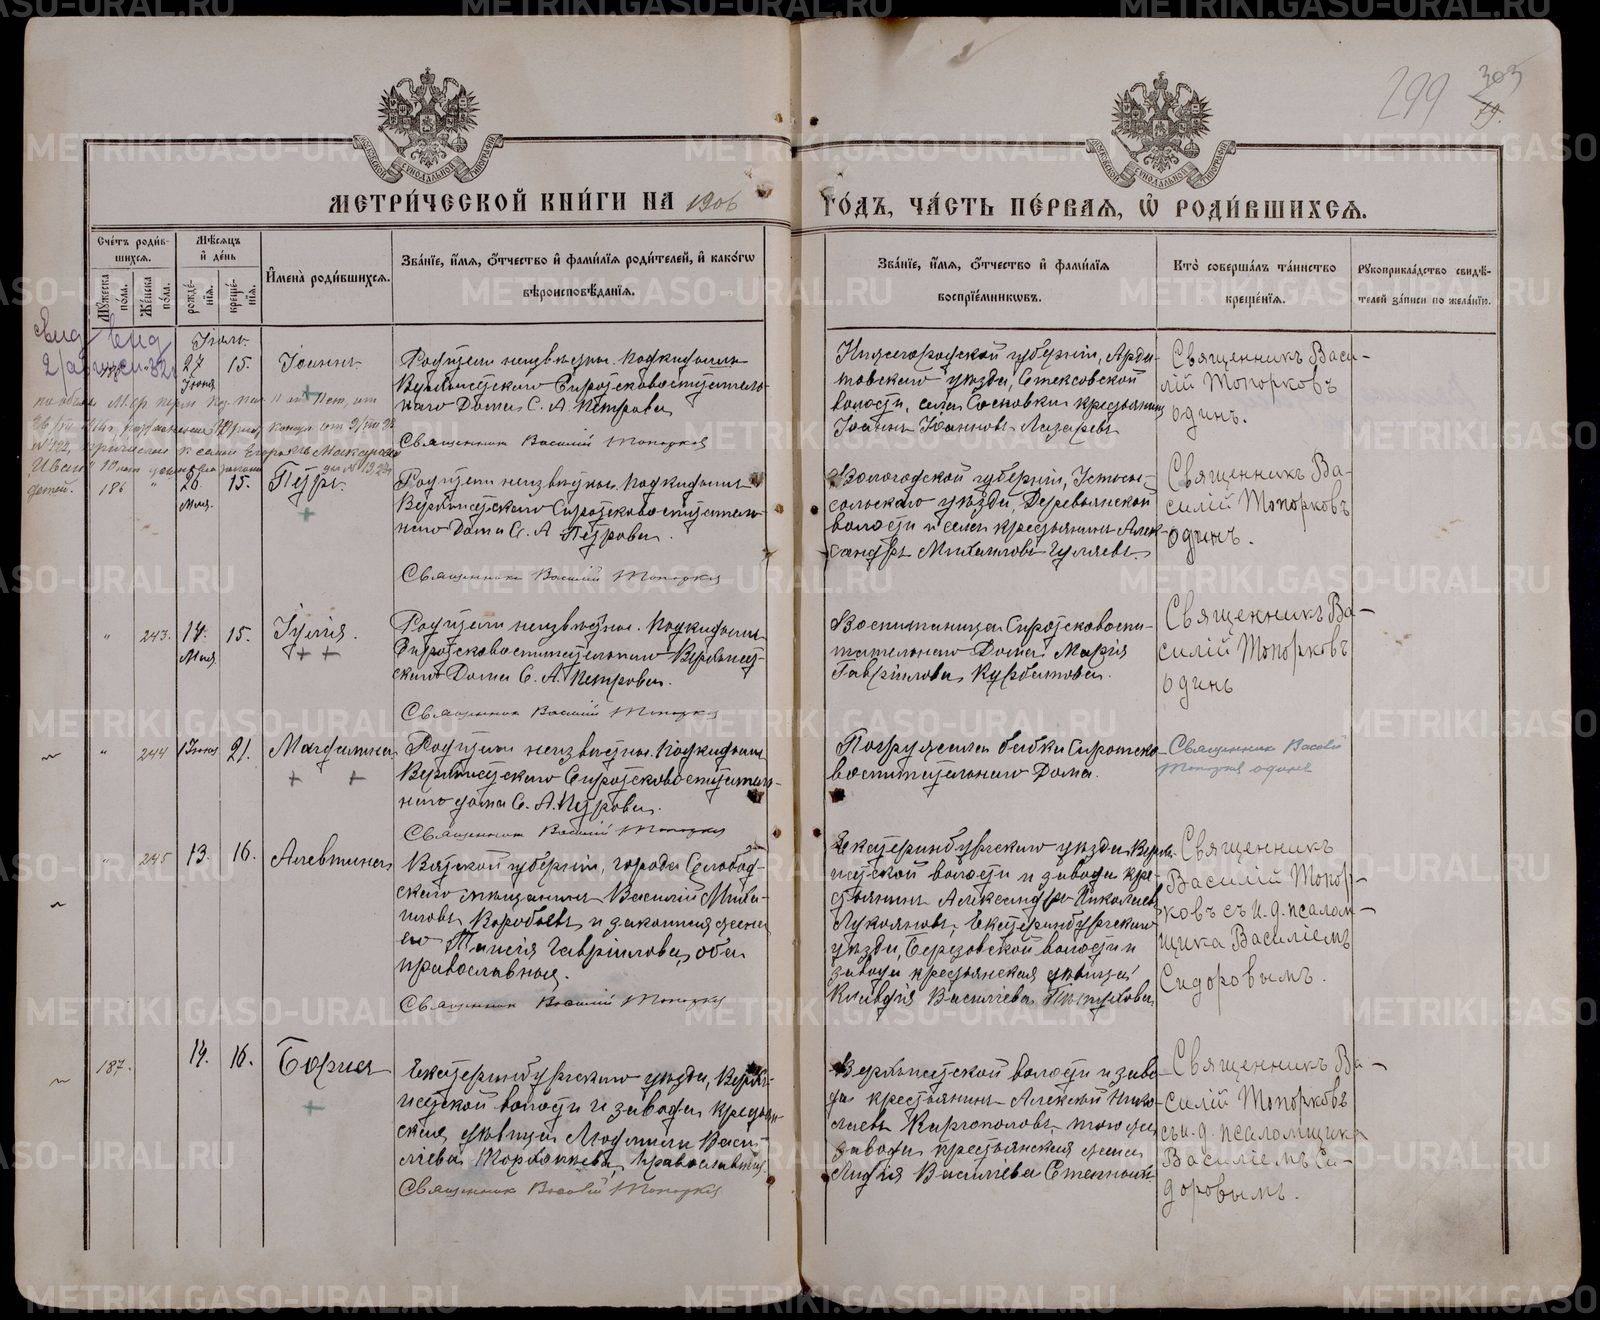 299
303
19.
МЕТРИ́ЧЕСКОЙ КНИ́ГИ НА 1906 ГО́ДЪ, ЧА́СТЬ ПЕ́РВАЯ, Ѡ҆ РОДИ́ВШИХСЯ.
Сче́тъ роди́в-
шихся.
Мꙋ́жеска по́ла.
Же́нска по́ла.
Мѣ́сяцъ
и҆ де́нь
рожде́-
нїя.
креще́-
нїя.
И҆мена̀ роди́вшихся.
Зва́нїе, и҆́мя, ѻ҆́тчество и҆ фами́лїя роди́телей, и҆ како́гѡ
вѣроисповѣ́данїя.
Зва́нїе, и҆́мя, ѻ҆́тчество и҆ фами́лїя
воспрїе́мникѡвъ.
Кто̀ соверша́лъ та́инство
креще́нїя.
Рꙋкоприкла́дство свидѣ́-
телей за́писи по жела́нїю.
Іюль.
27 Іюня
15.
Іоаннъ
Родители неизвѣстны. Подкидышъ
Верхъисетскаго Сиротсковоспитатель-
наго Дома С. А. Петрова
Священникъ Василій Топорковъ
Нижегородской губерніи, Арда-
товскаго уѣзда, Стексовской
волости, села Сосновки крестьянинъ
Іоаннъ Іоанновъ Лазаревъ
Священникъ Васи-
лій Топорковъ
одинъ.
186
"
26 Мая.
15.
Петръ.
Родители неизвѣстны. Подкидышъ
Верхъисетскаго Сиротсковоспитатель-
наго Дома С. А Петрова.
Священникъ Василій Топорковъ
Вологодской губерніи, Устьсы-
сольскаго уѣзда, Деревянской
волости и села крестьянинъ Алек-
сандръ Михаиловъ Гуляевъ.
Священникъ Ва-
силій Топорковъ
одинъ.
"
243.
14. Мая
15.
Іулія.
Родители неизвѣстны. Подкидышъ
Сиротсковоспитательнаго Верхъисет-
скаго Дома С. А. Петрова.
Священникъ Василій Топорковъ
Воспитаница Сиротсковоспи-
тательнаго Дома Марія
Гавріилова Курбатова.
Священникъ Ва-
силій Топорковъ
одинъ
"
244
1 Іюня
21.
Магдалина
Родители неизвѣстны. Подкидышъ
Верхъисетскаго Сиротсковоспитатель-
наго дома С. А. Петрова.
Священникъ Василій Топорковъ
Погружена бабка Сиротско-
воспитательнаго Дома.
Священникъ Василій
Топорковъ одинъ
"
245
13.
16.
Алевтина
Вятской губерніи, города Слобод-
ского мѣщанинъ Василій Миха-
иловъ Воробьевъ и законная жена
его Таисія Гавріилова, оба
православные.
Священникъ Василій Топорковъ
Екатеринбургскаго уѣзда, Верхъ-
исетской волости и завода кре-
стьянинъ Александръ Николаевъ
Лукояновъ, Екатеринбургскаго
уѣзда, Березовской волости и
завода крестьянская дѣвица
Клавдія Василіева Пѣтухова
Священникъ
Василій Топор-
ковъ съ и. д. псалом-
щика Василіемъ
Сидоровымъ.
187.
14.
16.
Борисъ
Екатеринбургскаго уѣзда, Верхъ-
исетской волости и завода крестьян-
ская дѣвица Людмила Васи-
ліева, православная.
Священникъ Василій Топорковъ
Верхъисетской волости и заво-
да крестьянинъ Алексѣй Нико-
лаевъ Каргополовъ, того же
завода крестьянская жена
Лидія Василіева
Священникъ Ва-
силій Топорковъ
съ и. д. псаломщика
Василіемъ Си-
доровымъ.
METRIKI.GASO-URAL.RU